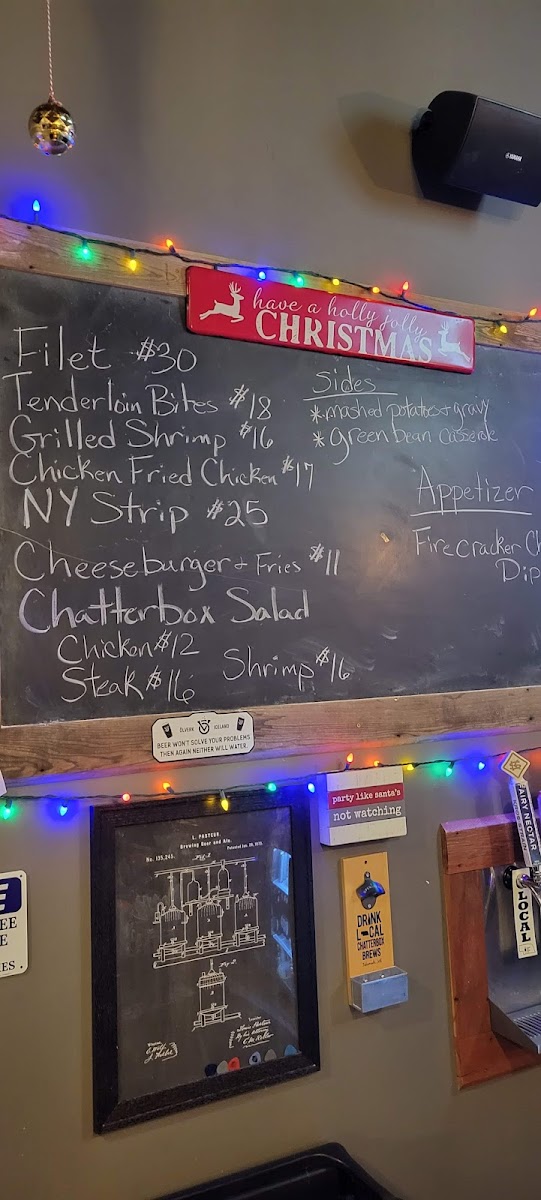 YAMAHA
have a holly jolly
CHRISTMAS
Filet $30
Tenderloin Bites $18
Grilled Shrimp $16
Chicken Fried Chicken $17
NY Strip $25
Cheeseburger + Fries $11
Chatterbox Salad
Chicken $12
Steak $16
Shrimp $16
Sides
*mashed potatoes + gravy
*green bean casserole
Appetizer
Firecracker Ch
Dip
ÖLVERK ICELAND
BEER WON'T SOLVE YOUR PROBLEMS
THEN AGAIN NEITHER WILL WATER.
party like santa's
not watching
L. PASTEUR.
Brewing Beer and Ale.
No. 135,245.
DRINK
LOCAL
CHATTERBOX
BREWS
FAIRY NECTAR
LOCAL